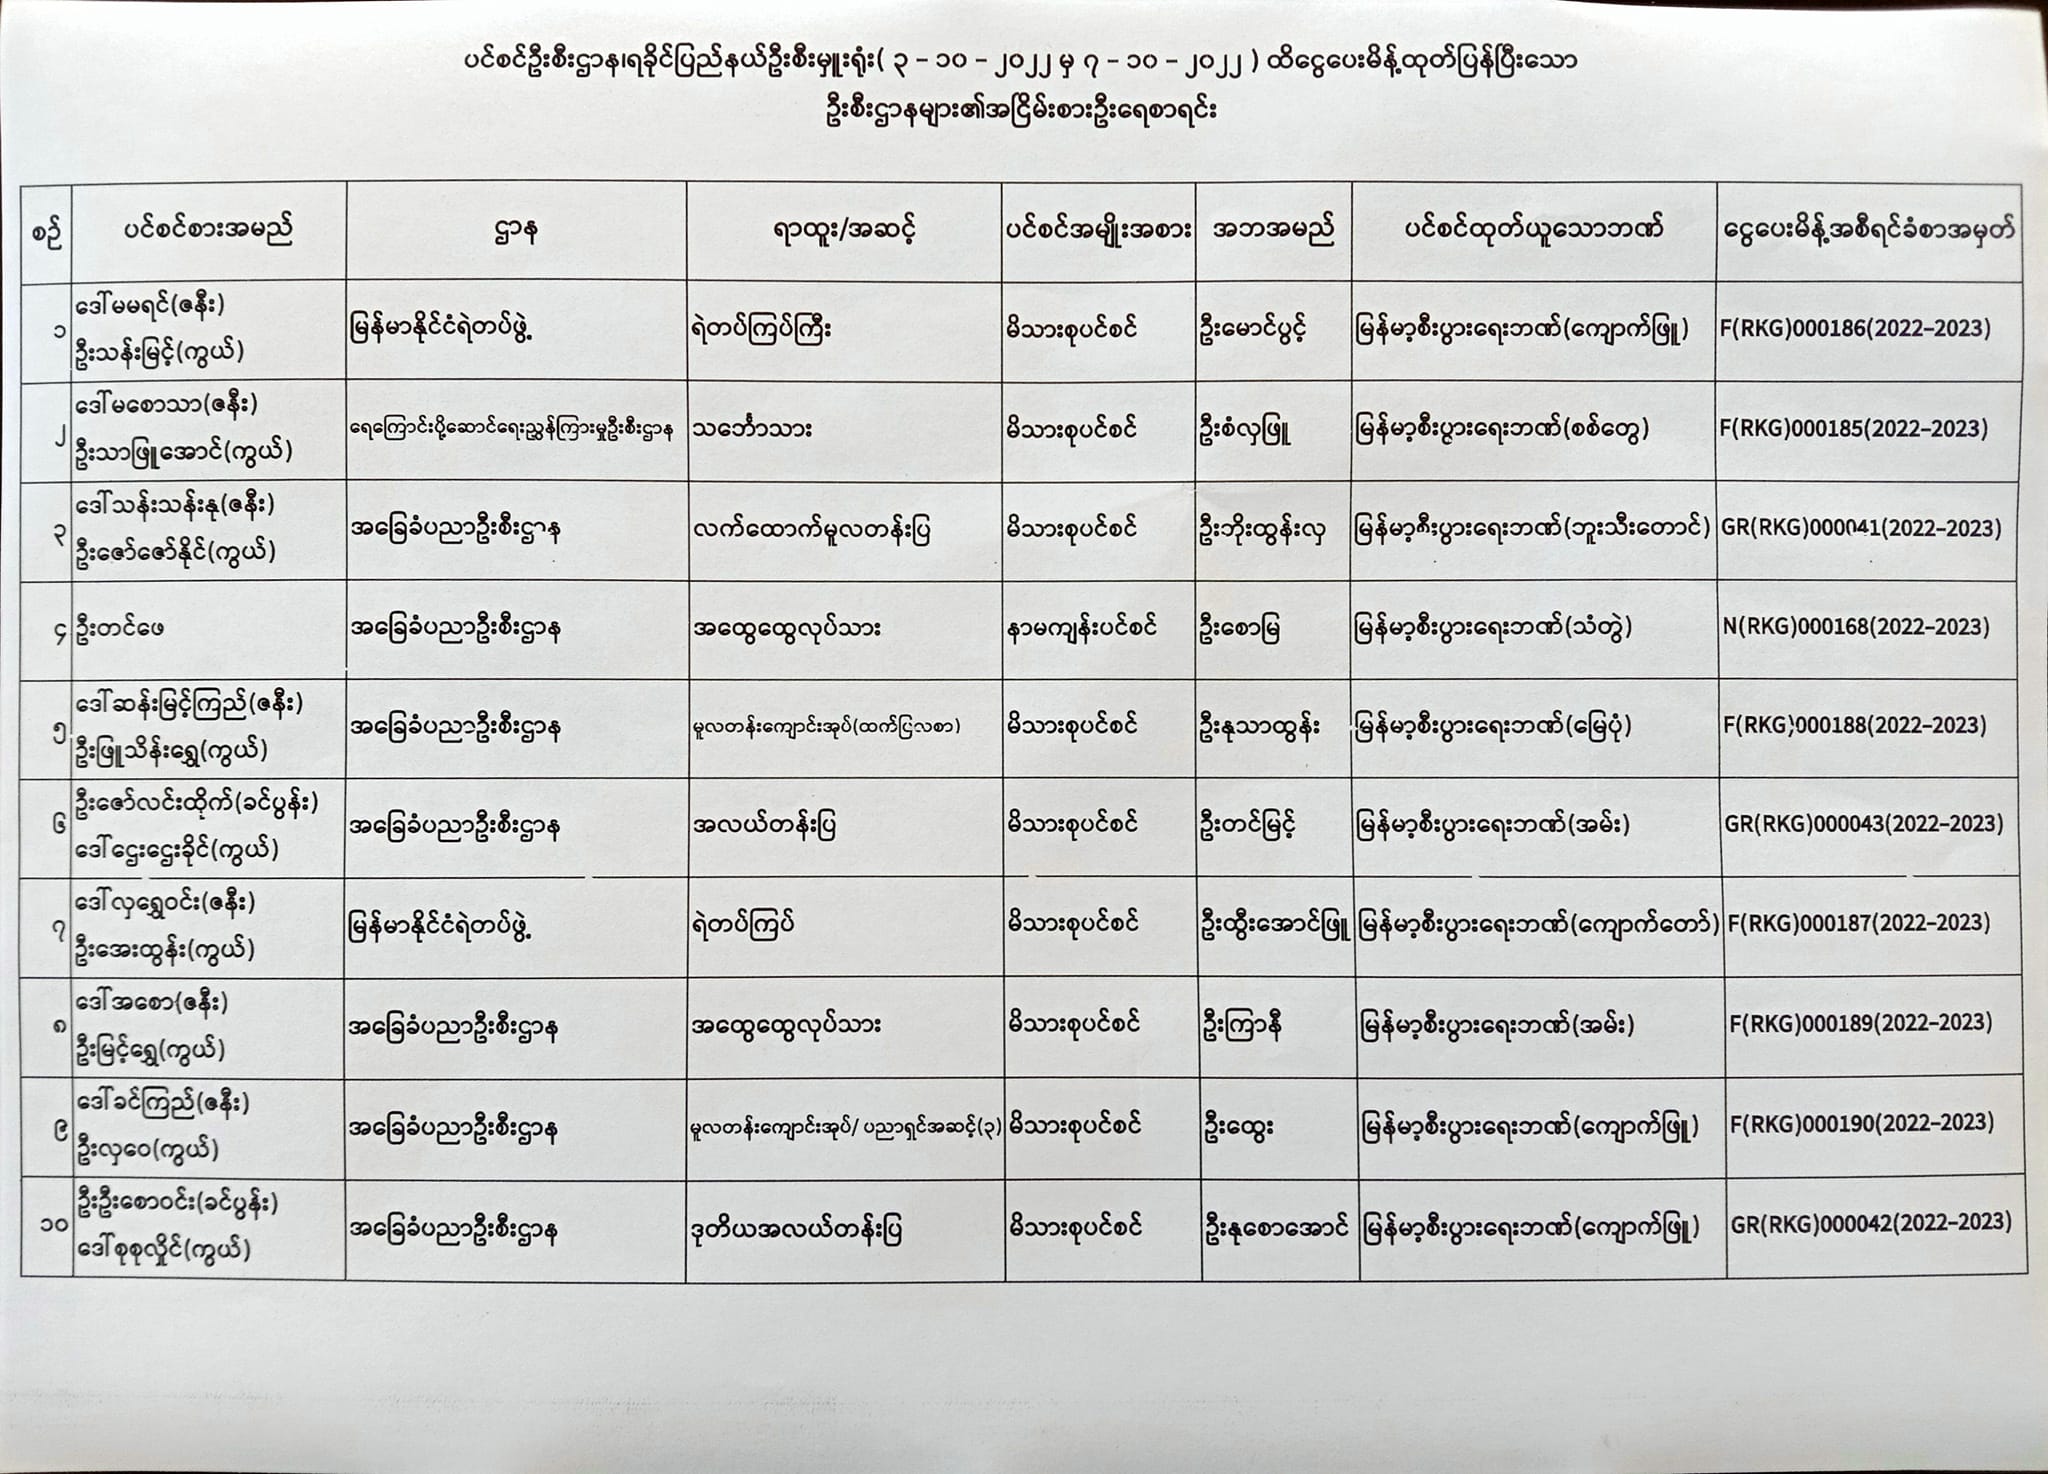 ပင်စင်ဦးစီးဌာန၊ရခိုင်ပြည်နယ်ဦးစီးမှူးရုံး( ၃ - ၁၀ - ၂၀၂၂ မှ ၇ - ၁၀ - ၂၀၂၂ ) ထိငွေပေးမိန့်ထုတ်ပြန်ပြီးသော
ဦးစီးဌာနများ၏အငြိမ်းစားဦးရေစာရင်း
စဉ် ပင်စင်စားအမည် ဌာန ရာထူး/အဆင့် ပင်စင်အမျိုးအစား အဘအမည် ပင်စင်ထုတ်ယူသောဘဏ် ငွေပေးမိန့်အစီရင်ခံစာအမှတ်
၁ ဒေါ်မမရင်(ဇနီး)
ဦးသန်းမြင့်(ကွယ်) မြန်မာနိုင်ငံရဲတပ်ဖွဲ့ ရဲတပ်ကြပ်ကြီး မိသားစုပင်စင် ဦးမောင်ပွင့် မြန်မာ့စီးပွားရေးဘဏ်(ကျောက်ဖြူ) F(RKG)000186(2022-2023)
၂ ဒေါ်မစောသာ(ဇနီး)
ဦးသာဖြူအောင်(ကွယ်) ရေကြောင်းပို့ဆောင်ရေးညွှန်ကြားမှုဦးစီးဌာန သင်္ဘောသား မိသားစုပင်စင် ဦးစံလှဖြူ မြန်မာ့စီးပွားရေးဘဏ်(စစ်တွေ) F(RKG)000185(2022-2023)
၃ ဒေါ်သန်းသန်းနု(ဇနီး)
ဦးဇော်ဇော်နိုင်(ကွယ်) အခြေခံပညာဦးစီးဌာန လက်ထောက်မူလတန်းပြ မိသားစုပင်စင် ဦးဘိုးထွန်းလှ မြန်မာ့စီးပွားရေးဘဏ်(ဘူးသီးတောင်) GR(RKG)000041(2022-2023)
၄ ဦးတင်ဖေ အခြေခံပညာဦးစီးဌာန အထွေထွေလုပ်သား နာမကျန်းပင်စင် ဦးစောမြ မြန်မာ့စီးပွားရေးဘဏ်(သံတွဲ) N(RKG)000168(2022-2023)
၅ ဒေါ်ဆန်းမြင့်ကြည်(ဇနီး)
ဦးဖြူသိန်းရွှေ(ကွယ်) အခြေခံပညာဦးစီးဌာန မူလတန်းကျောင်းအုပ်(ထက်ငြလစာ) မိသားစုပင်စင် ဦးနုသာထွန်း မြန်မာ့စီးပွားရေးဘဏ်(မြေပုံ) F(RKG)000188(2022-2023)
၆ ဦးဇော်လင်းထိုက်(ခင်ပွန်း)
ဒေါ်ဌေးဌေးခိုင်(ကွယ်) အခြေခံပညာဦးစီးဌာန အလယ်တန်းပြ မိသားစုပင်စင် ဦးတင်မြင့် မြန်မာ့စီးပွားရေးဘဏ်(အမ်း) GR(RKG)000043(2022-2023)
၇ ဒေါ်လှရွှေဝင်း(ဇနီး)
ဦးအေးထွန်း(ကွယ်) မြန်မာနိုင်ငံရဲတပ်ဖွဲ့ ရဲတပ်ကြပ် မိသားစုပင်စင် ဦးထွီးအောင်ဖြူ မြန်မာ့စီးပွားရေးဘဏ်(ကျောက်တော်) F(RKG)000187(2022-2023)
၈ ဒေါ်အစော(ဇနီး)
ဦးမြင့်ရွှေ(ကွယ်) အခြေခံပညာဦးစီးဌာန အထွေထွေလုပ်သား မိသားစုပင်စင် ဦးကြာနီ မြန်မာ့စီးပွားရေးဘဏ်(အမ်း) F(RKG)000189(2022-2023)
၉ ဒေါ်ခင်ကြည်(ဇနီး)
ဦးလှဝေ(ကွယ်) အခြေခံပညာဦးစီးဌာန မူလတန်းကျောင်းအုပ်/ ပညာရှင်အဆင့်(၃) မိသားစုပင်စင် ဦးထွေး မြန်မာ့စီးပွားရေးဘဏ်(ကျောက်ဖြူ) F(RKG)000190(2022-2023)
၁၀ ဦးဦးစောဝင်း(ခင်ပွန်း)
ဒေါ်စုစုလှိုင်(ကွယ်) အခြေခံပညာဦးစီးဌာန ဒုတိယအလယ်တန်းပြ မိသားစုပင်စင် ဦးနုစောအောင် မြန်မာ့စီးပွားရေးဘဏ်(ကျောက်ဖြူ) GR(RKG)000042(2022-2023)